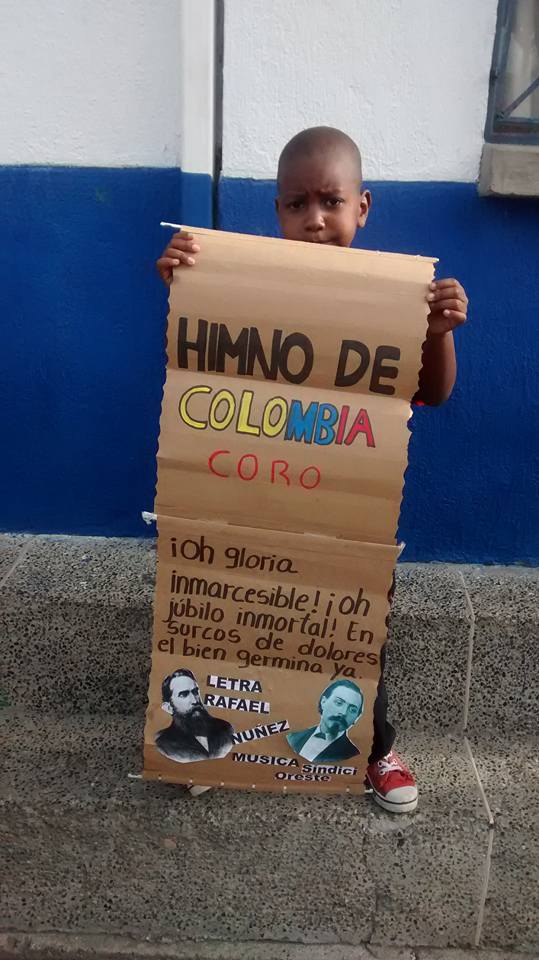 HIMNO DE
COLOMBIA
CORO
¡Oh gloria
inmarcesible! ¡oh
júbilo inmortal! En
surcos de dolores
el bien germina ya.
LETRA
RAFAEL
NUÑEZ
MUSICA Sindici
Oreste